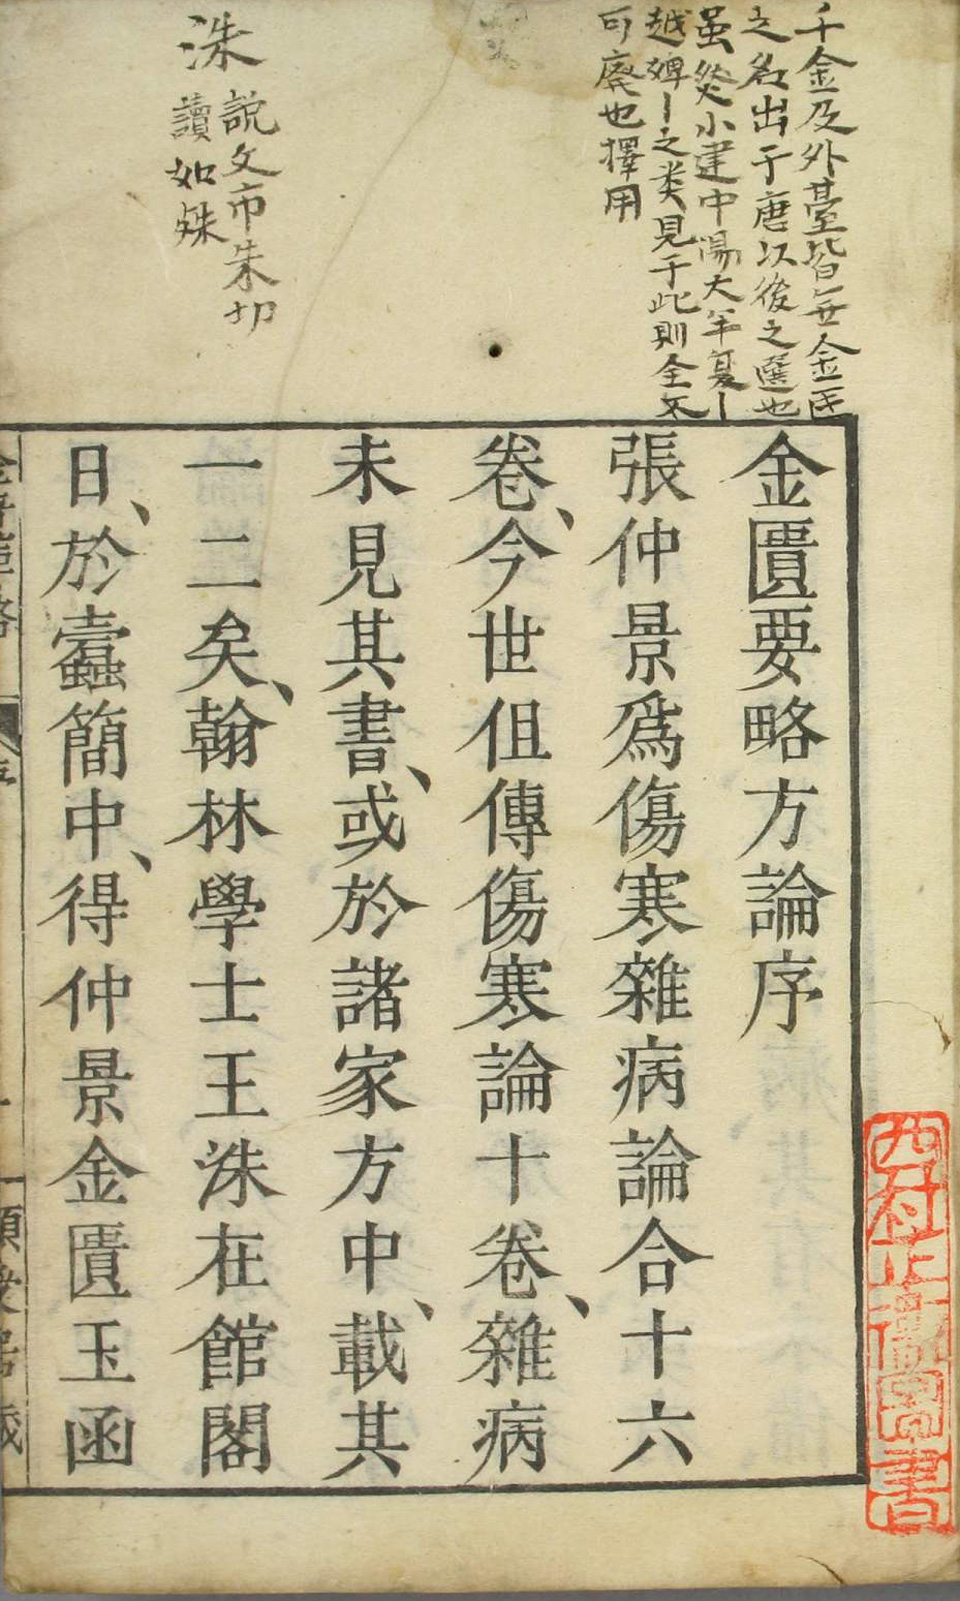 千金及外臺皆無金匱
之名出于唐以後之選也
虽然小建中湯大半夏丨
越婢丨之类見于此則全不
可廢也擇用
洙
説文市朱切
讀如殊
金匱要略方論序
張仲景爲傷寒雜病論合十六
卷、今世但傳傷寒論十卷、雜病
未見其書、或於諸家方中、載其
一二矣、翰林學士王洙在館閣
日、於蠹簡中、得仲景金匱玉函